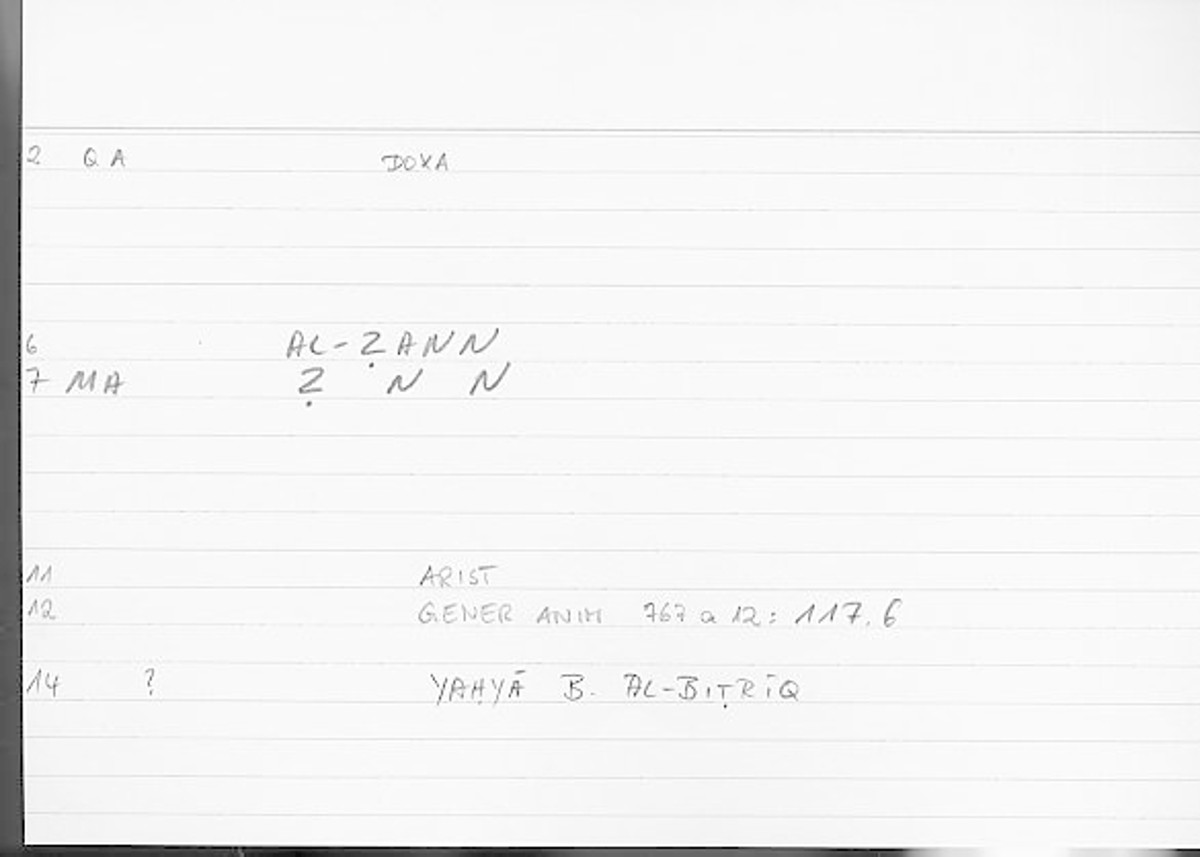 2 QA DOXA
6 AL-ẒANN
7 MA Ẓ N N
11 ARIST
12 GENER ANIM 767 a 12: 117.6
14 ? YAḤYĀ B. AL-BIṬRĪQ